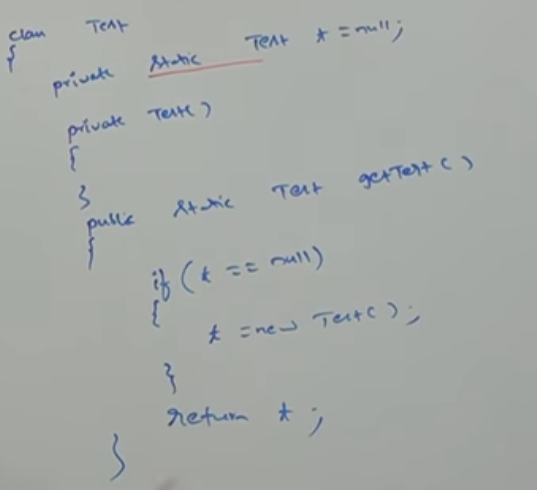 class Test
{
private static Test t = null;
private Test()
{
}
public static Test getTest()
{
if (t == null)
{
t = new Test();
}
return t;
}